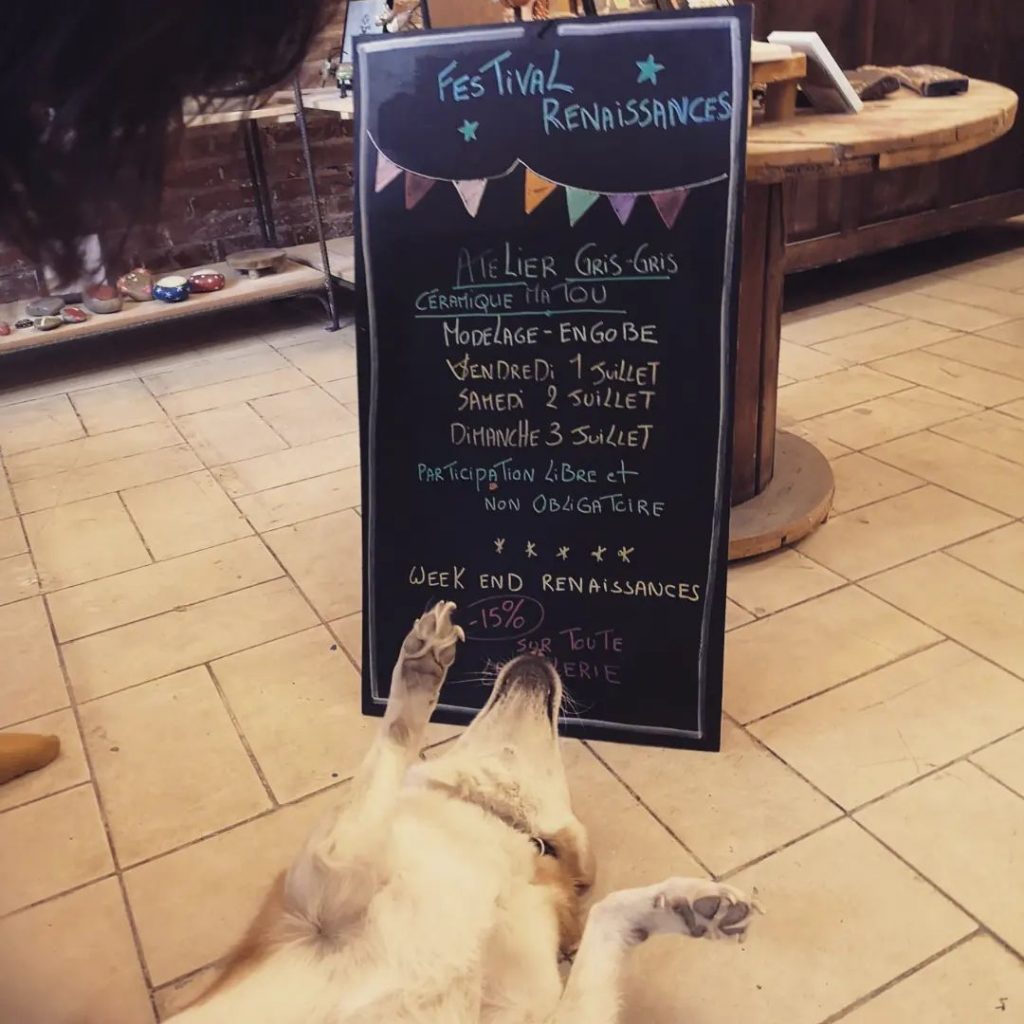 FESTIVAL
RENAISSANCES
ATELIER GRIS-GRIS
CÉRAMIQUE MA TOU
MODELAGE - ENGOBE
VENDREDI 1 JUILLET
SAMEDI 2 JUILLET
DIMANCHE 3 JUILLET
PARTICIPATION LIBRE et
NON OBLIGATOIRE
* * * * *
WEEK END RENAISSANCES
-15%
SUR TOUTE